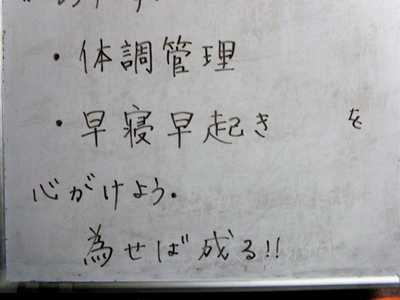 ・体調管理
・早寝早起き を
心がけよう.
為せば成る!!